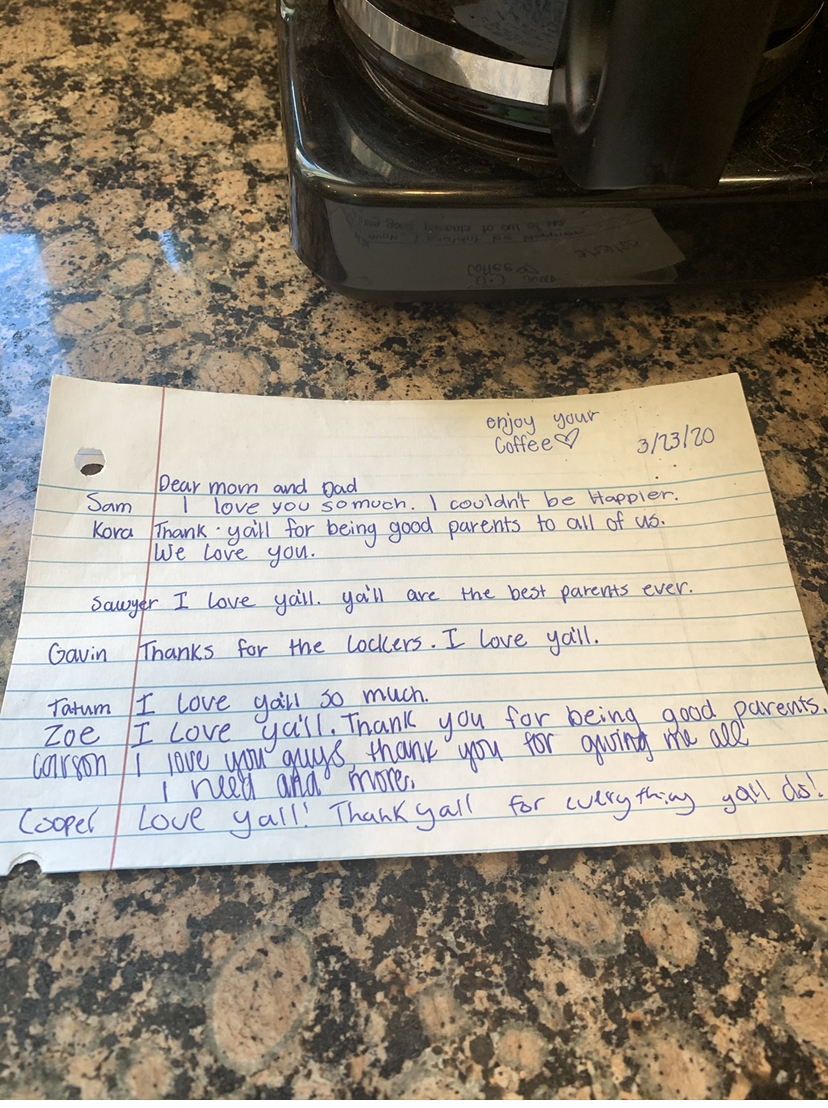 enjoy your
Coffee♡
3/23/20
Dear mom and Dad
Sam I love you so much. I couldn't be Happier.
Kora Thank ya'll for being good parents to all of us.
We love you.
Sawyer I love ya'll. ya'll are the best parents ever.
Gavin Thanks for the Lockers. I love ya'll.
Tatum I love ya'll so much.
Zoe I love ya'll. Thank you for being good parents.
Carson I love you guys, thank you for giving me all
I need and more.
Cooper Love yall! Thank yall for everything yall do!